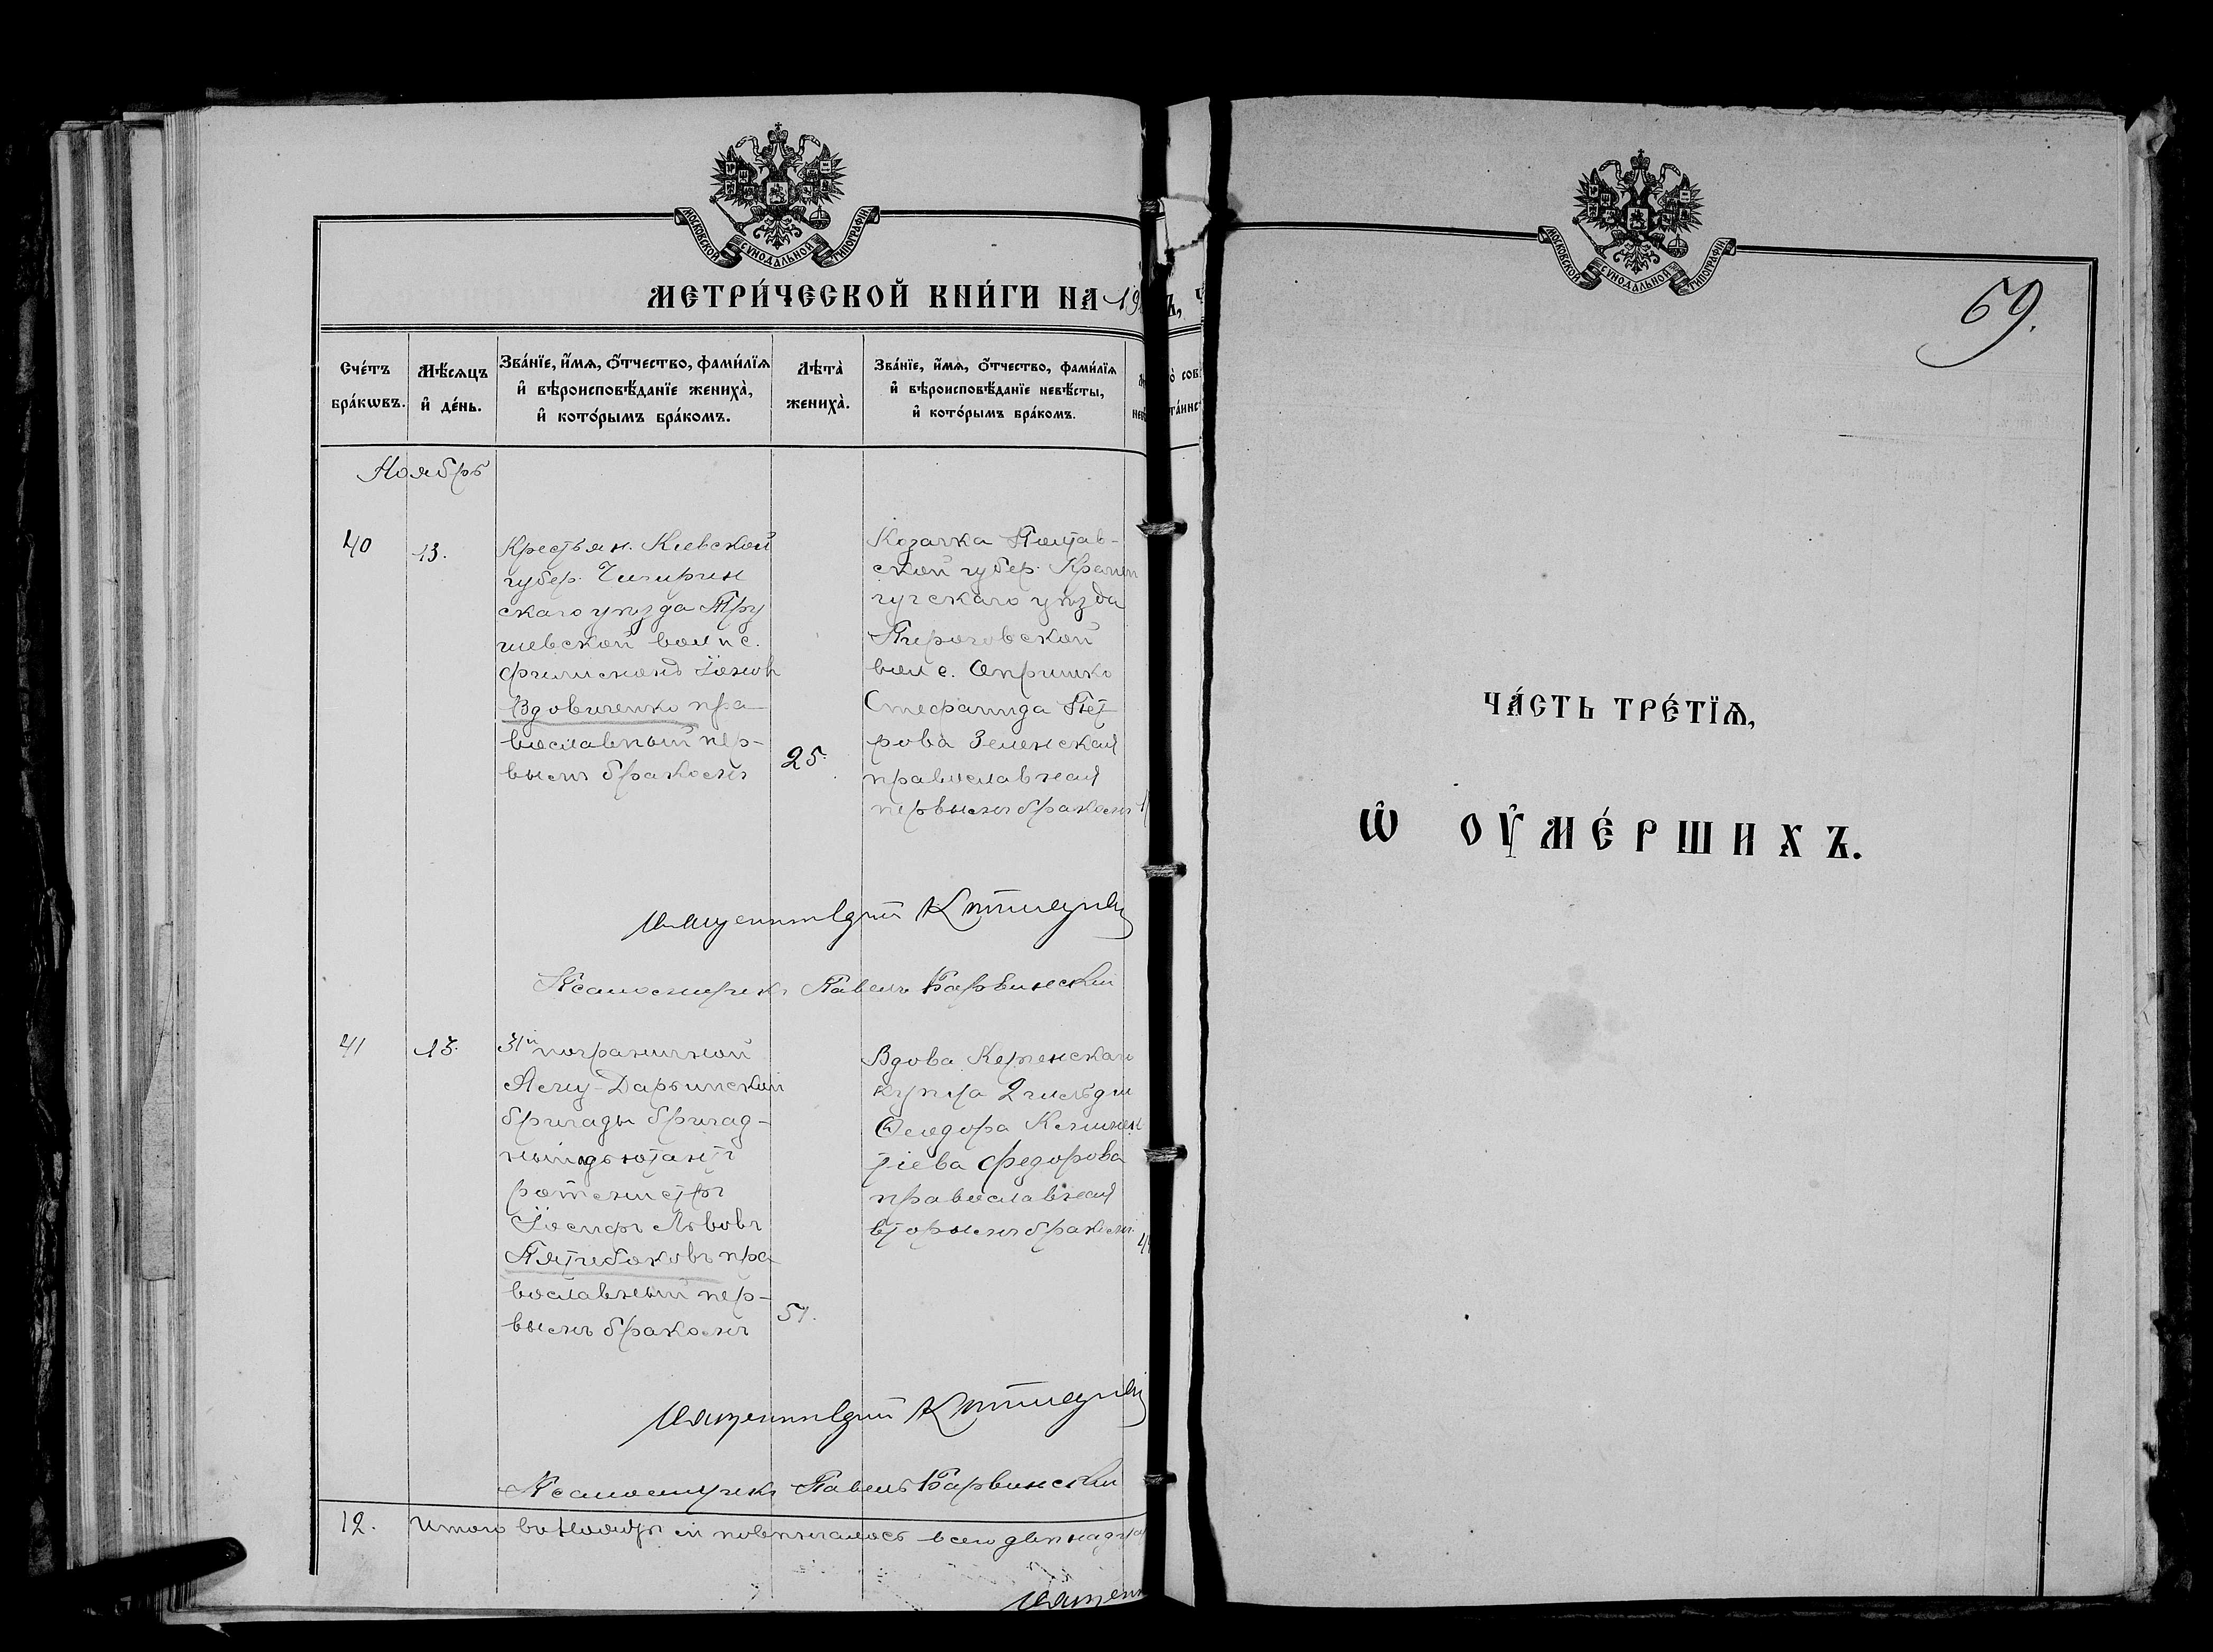 МОСКОВСКОЙ СѴНОДАЛЬНОЙ ТИПОГРАФІИ
МЕТРИ́ЧЕСКОЙ КНИ́ГИ НА 19
Сче́тъ бра́кѡвъ.
Мѣ́сяцъ и҆ де́нь.
Зва́нїе, и҆́мѧ, ѻ҆́тчество, фами́лїѧ
и҆ вѣроисповѣ́данїе жениха̀,
и҆ кото́рымъ бра́комъ.
Лѣта̀ жениха̀.
Зва́нїе, и҆́мѧ, ѻ҆́тчество, фами́лїѧ
и҆ вѣроисповѣ́данїе невѣ́сты,
и҆ кото́рымъ бра́комъ.
Ноябрь
40
13.
Крестьян. Кіевской
губер. Чигирин
скаго уѣзда Тру
шевской вол и с.
Филимонъ Іонов
Вдовиченко пра-
вославный пер-
вымъ бракомъ
25.
Козачка Полтав-
ской губер. Кремен
чугскаго уѣзда
Пироговской
вол с. Опришко
Стефанида Пет
рова Зеленская
православная
первымъ бракомъ
Псаломщикъ Павелъ Барвинскій
41
13.
31й пограничной
Аму-Дарьинской
бригады бригад-
ный адъютантъ
ротмистръ
Іосифъ Львовъ
Пятибоковъ пра
вославный пер-
вымъ бракомъ
51.
Вдова Керенскаго
купца 2 гильдіи
Ѳеодора Климен
тіева Федорова
православная
вторымъ бракомъ
Псаломщикъ Павелъ Барвинскій
12.
Итого въ Ноябрѣ повѣнчалось всего двѣнадца
МОСКОВСКОЙ СѴНОДАЛЬНОЙ ТИПОГРАФІИ
69.
ЧА́СТЬ ТРЕ́ТЇѦ,
Ѡ҆ ОУ҆МЕ́РШИХЪ.